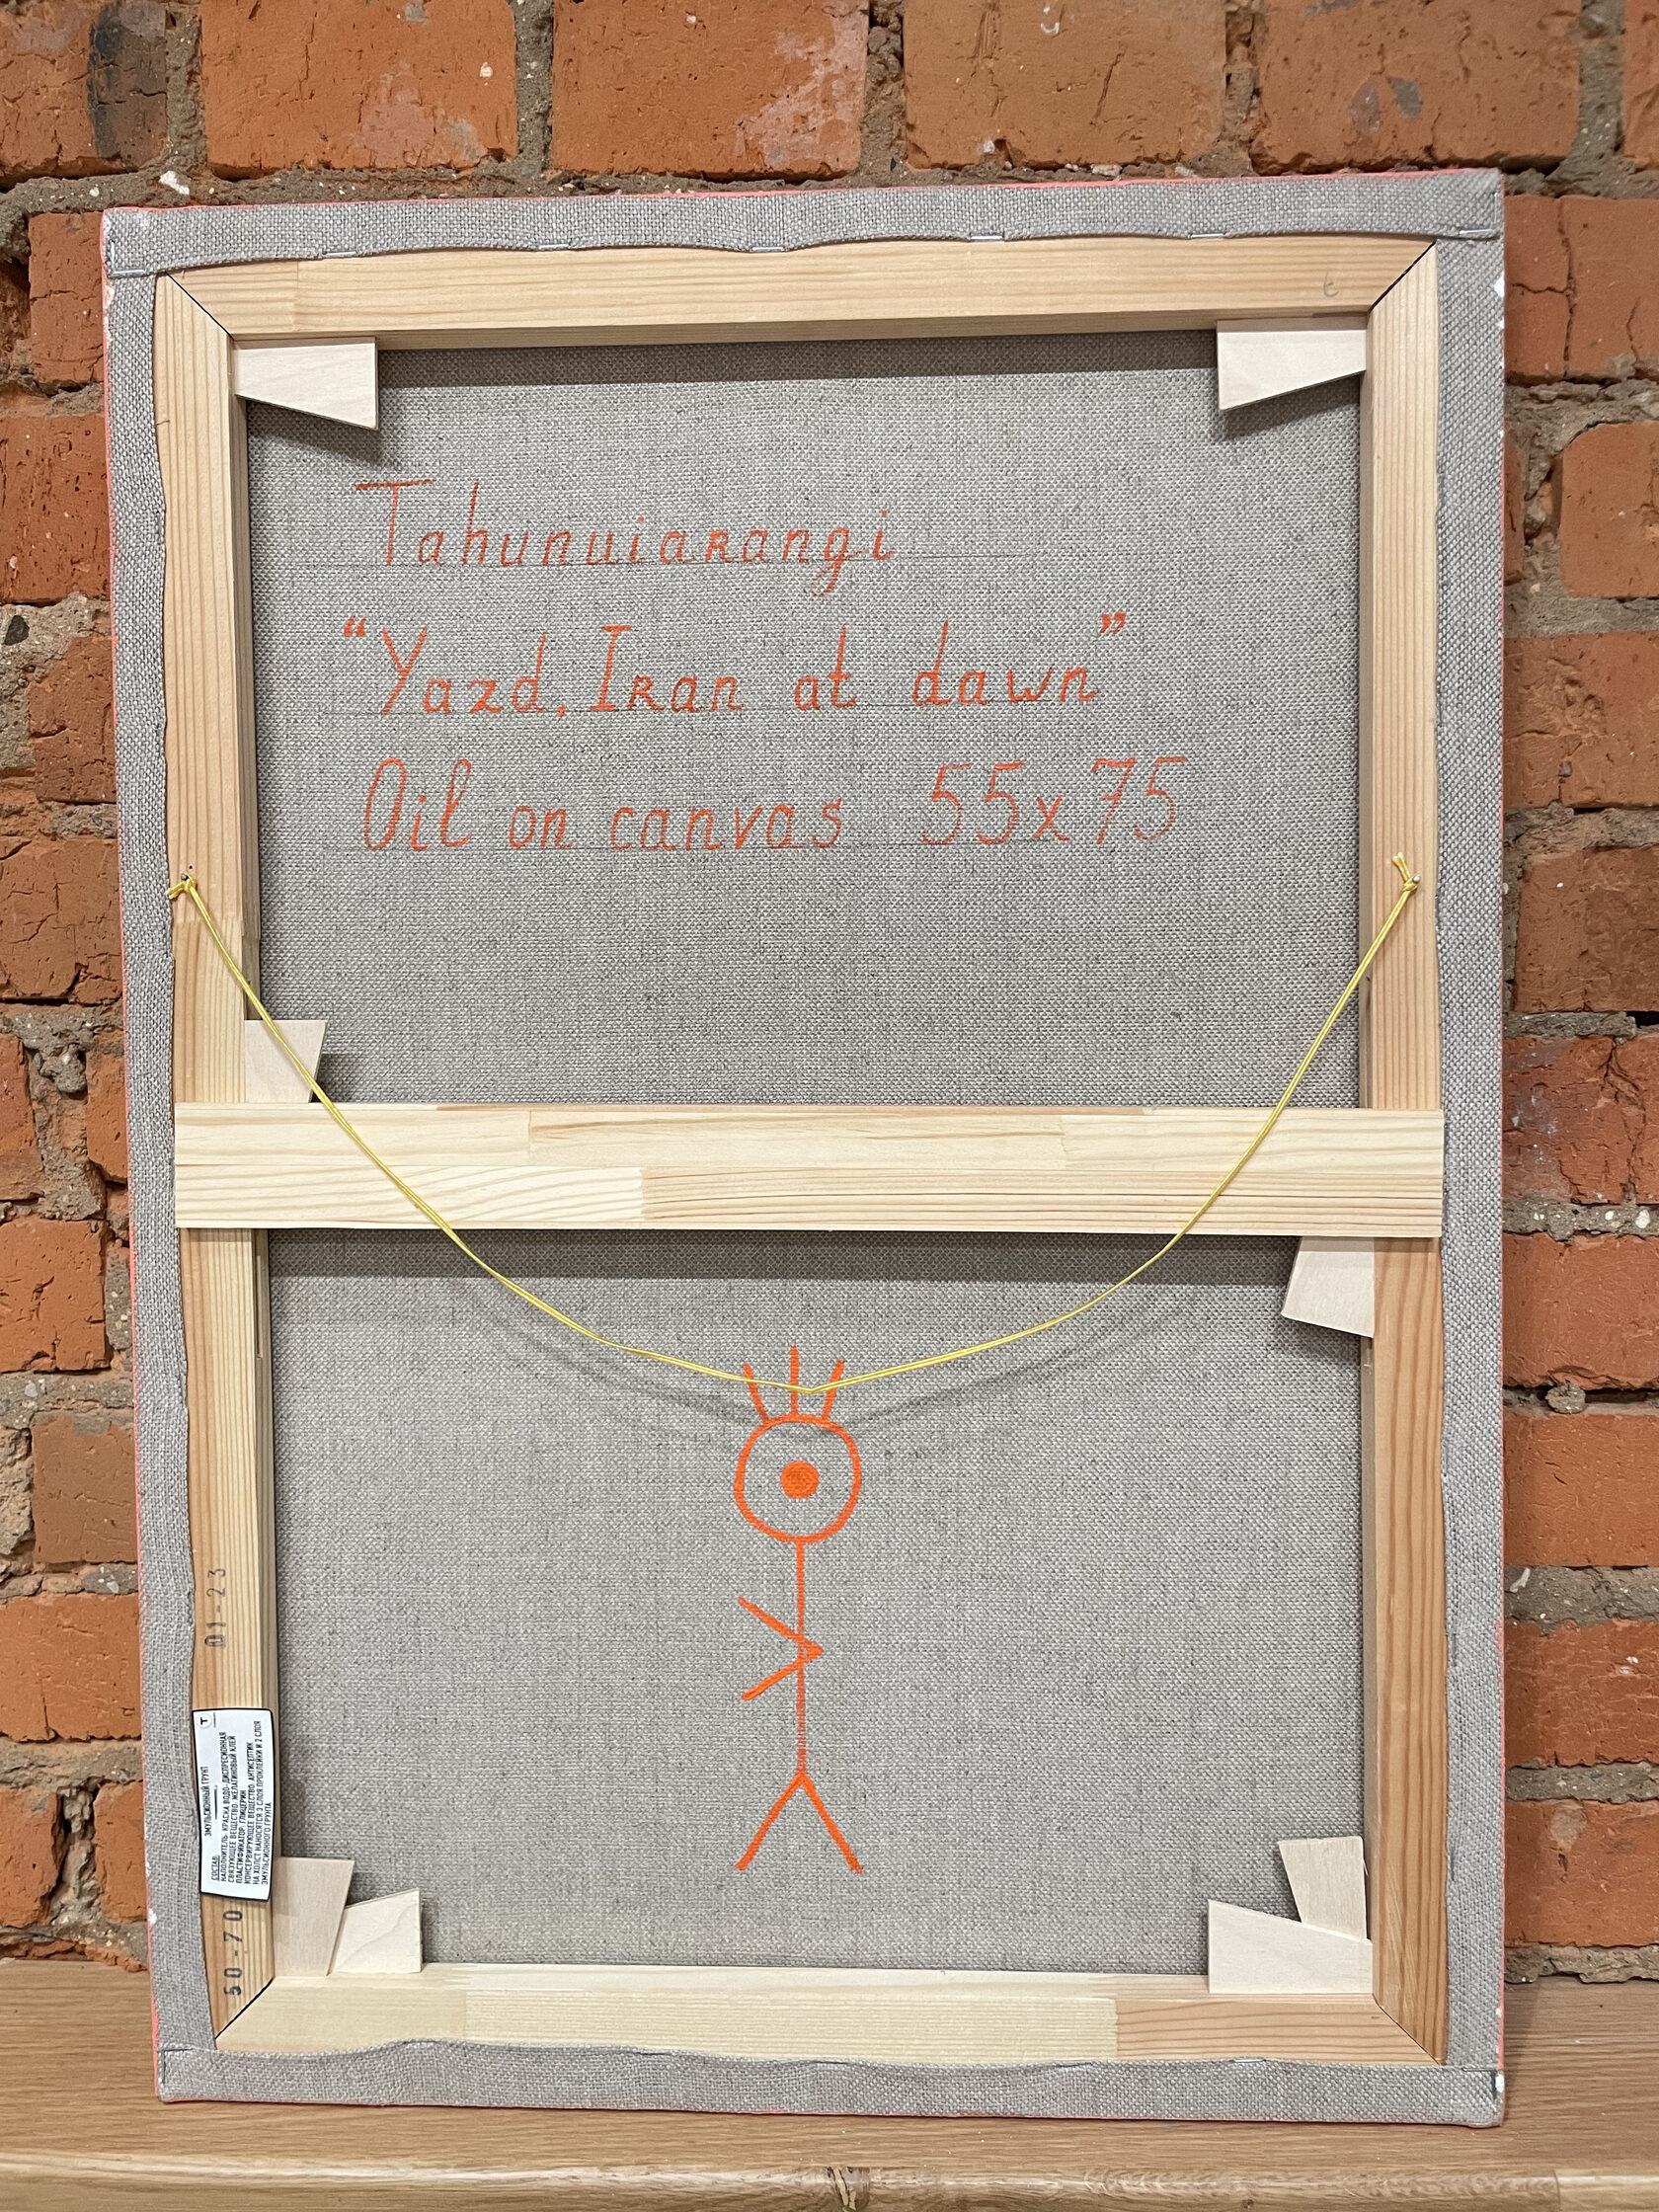 Tahunuiarangi
“Yazd, Iran at dawn”
Oil on canvas 55x75
01-23
Т
ЭМУЛЬСИОННЫЙ ГРУНТ
СОСТАВ:
НАПОЛНИТЕЛЬ: КРАСКА ВОДО-ДИСПЕРСИОННАЯ
СВЯЗУЮЩЕЕ ВЕЩЕСТВО: ЖЕЛАТИНОВЫЙ КЛЕЙ
ПЛАСТИФИКАТОР: ГЛИЦЕРИН
КОНСЕРВИРУЮЩЕЕ ВЕЩЕСТВО: АНТИСЕПТИК
НА ХОЛСТ НАНОСЯТСЯ 3 СЛОЯ ПРОКЛЕЙКИ И 2 СЛОЯ
ЭМУЛЬСИОННОГО ГРУНТА
50-70